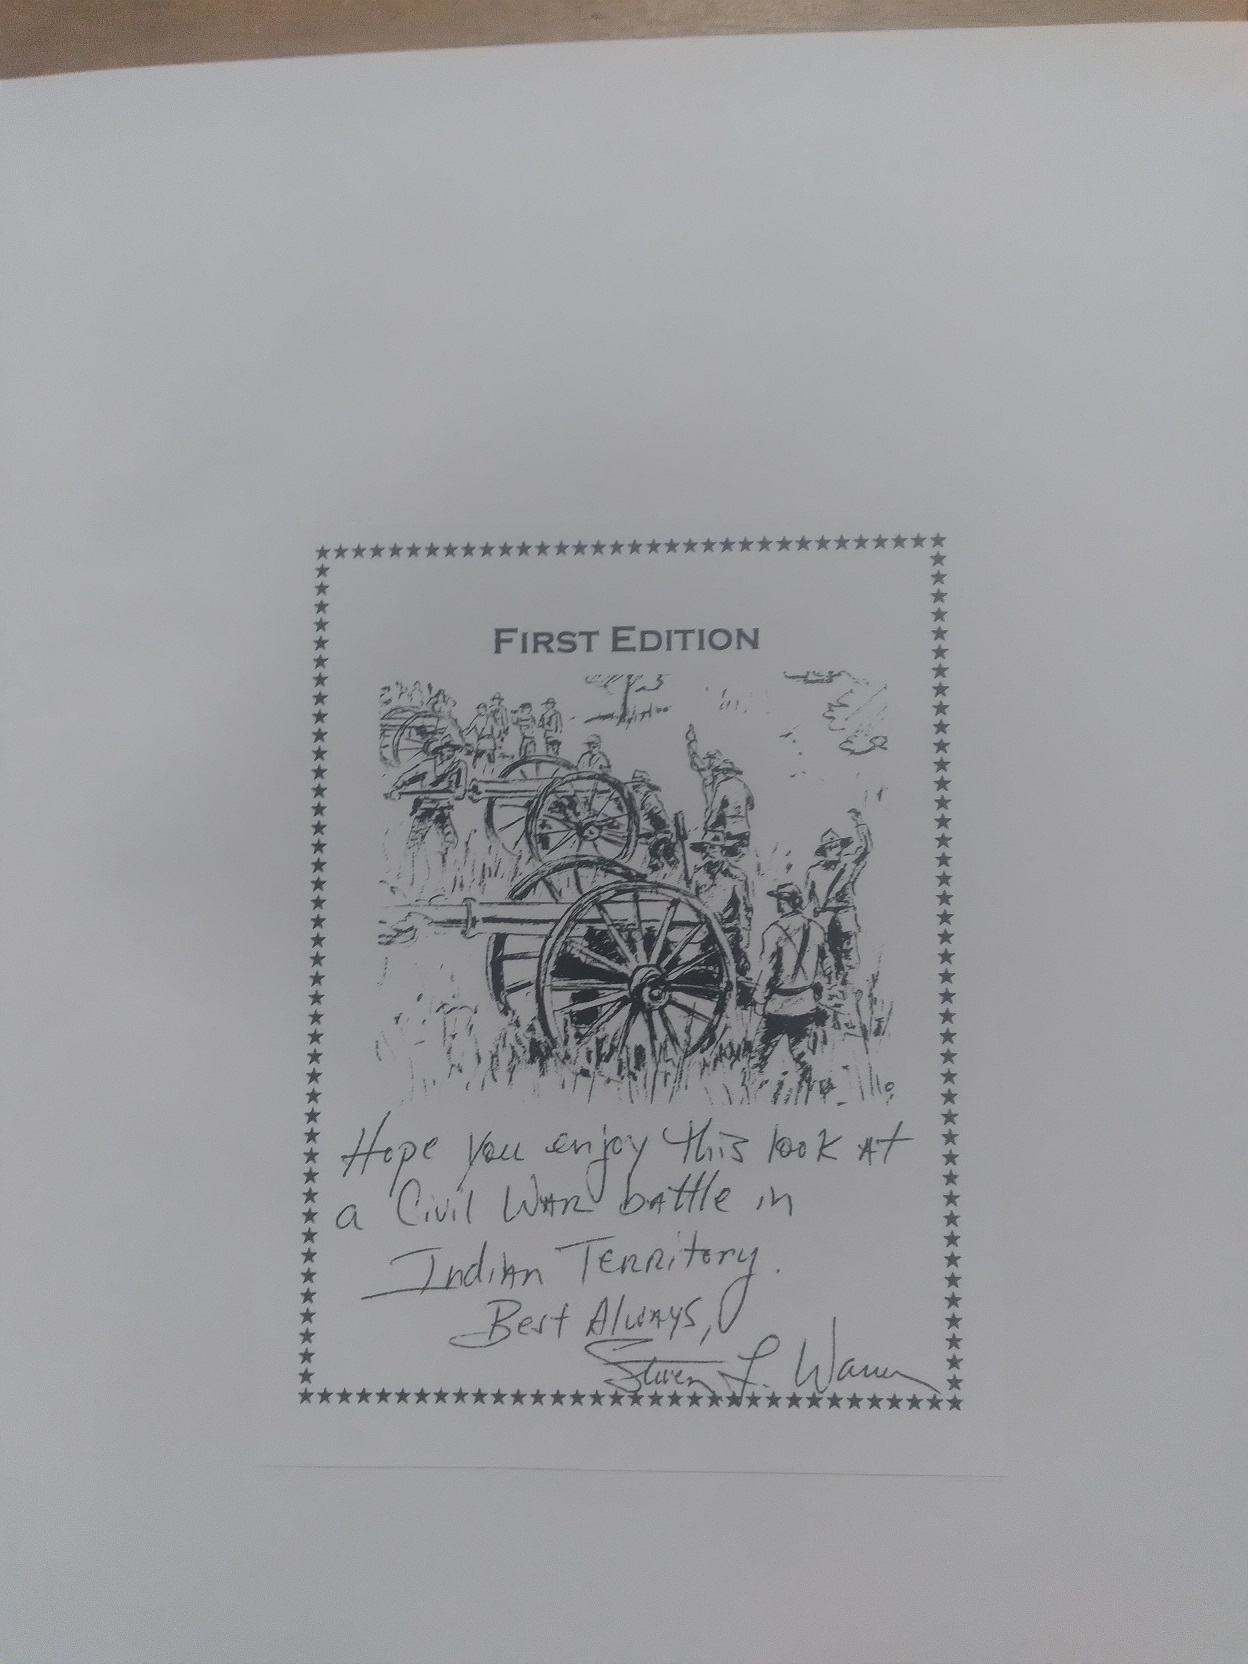 FIRST EDITION
Hope you enjoy this look at
a Civil War battle in
Indian Territory.
Best Always,
Steven L. Warren